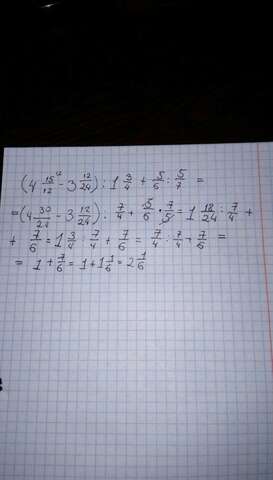 (4 15/12 ² - 3 12/24) : 1 3/4 + 5/6 : 5/7 =
= (4 30/24 - 3 12/24) : 7/4 + 5/6 · 7/5 = 1 18/24 : 7/4 +
+ 7/6 = 1 3/4 : 7/4 + 7/6 = 7/4 : 7/4 + 7/6 =
= 1 + 7/6 = 1 + 1 1/6 = 2 1/6